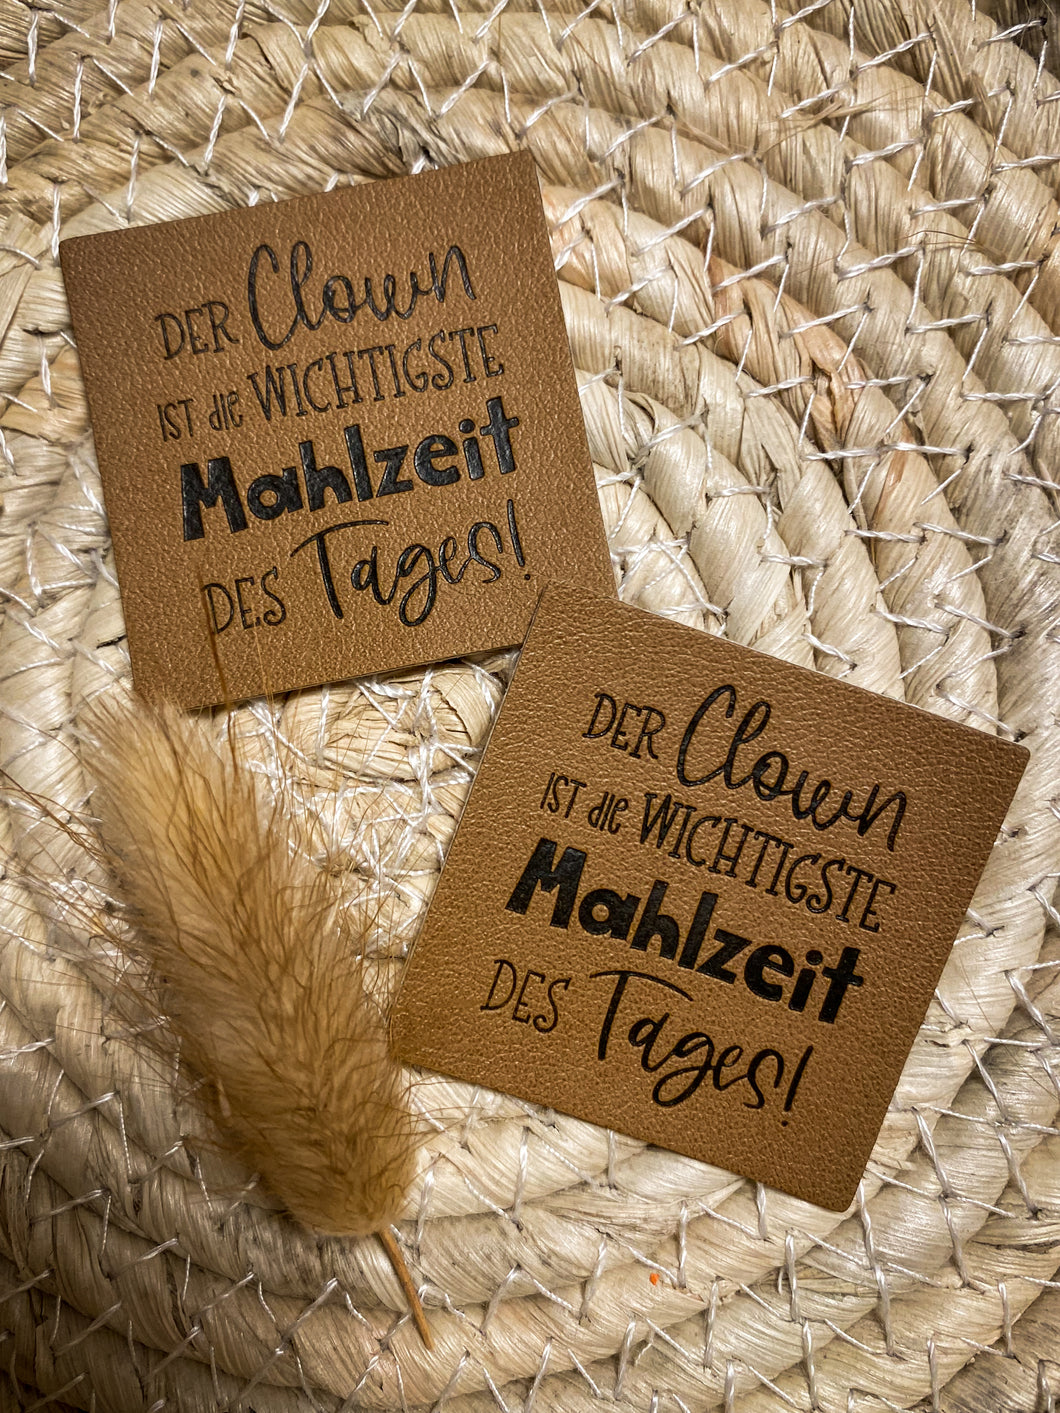 DER Clown
IST die WICHTIGSTE
Mahlzeit
DES Tages!
DER Clown
IST die WICHTIGSTE
Mahlzeit
DES Tages!